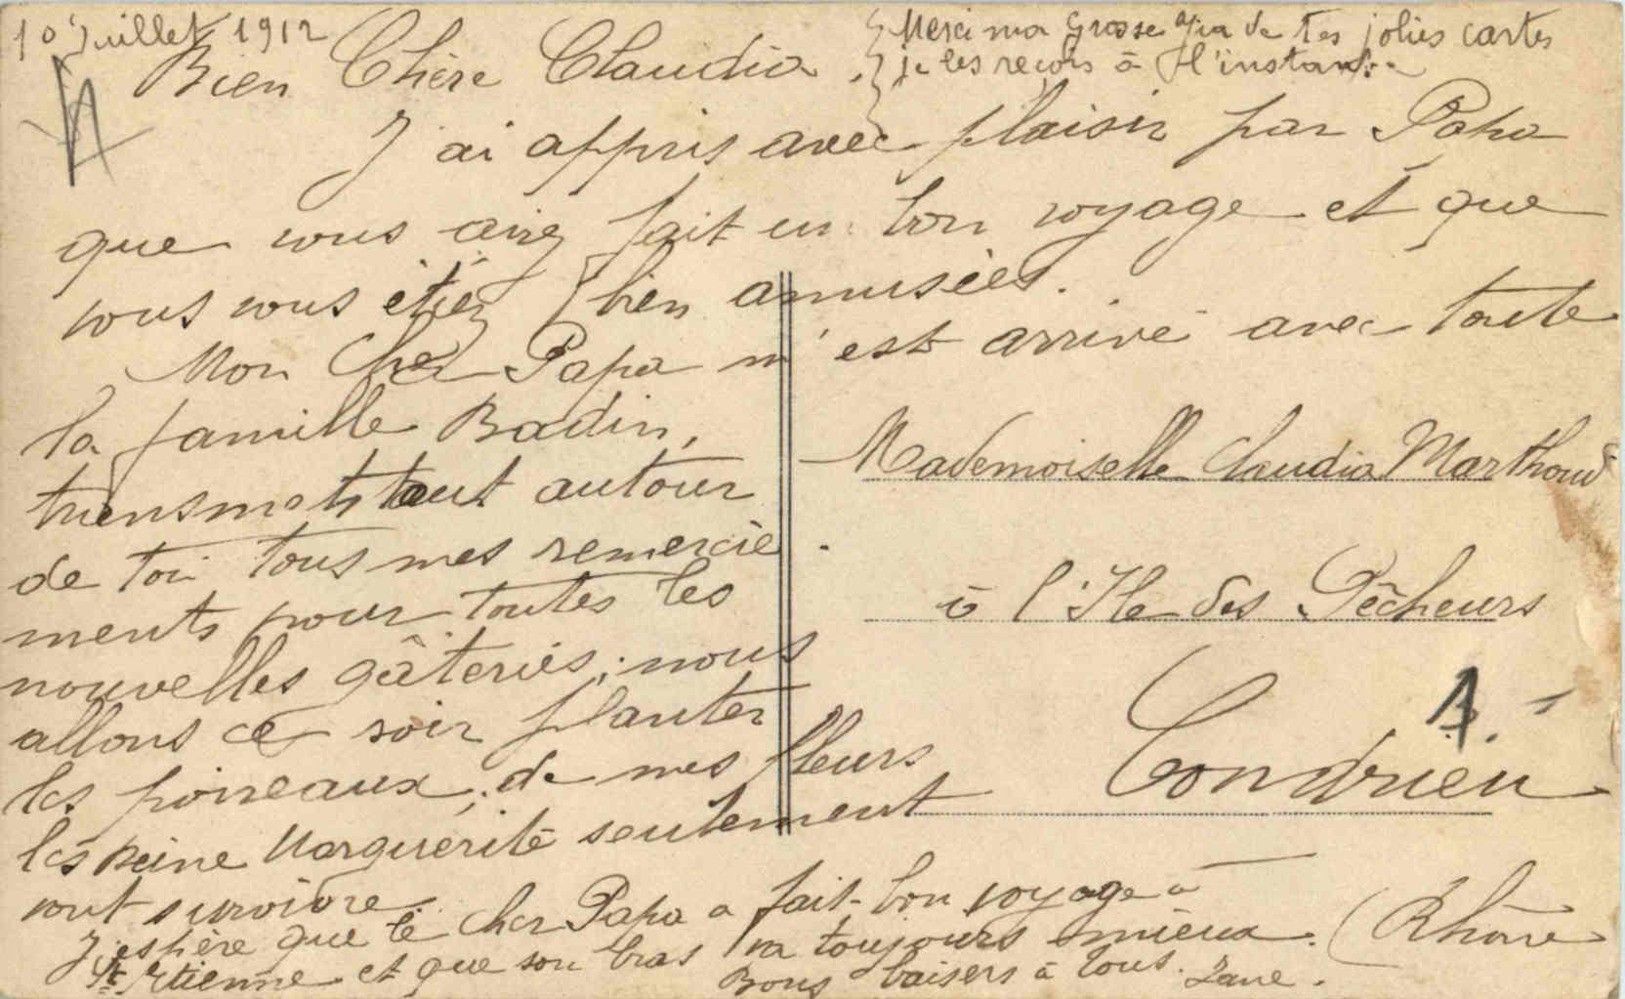 10 Juillet 1912
Merci ma Grosse de tes jolies cartes
je les reçois à l'instant.
Bien Chère Claudia.
J'ai appris avec plaisir par Papa
que vous aviez fait un bon voyage et que
vous vous étiez bien amusées.
Mon Cher Papa m'est arrivé avec toute
la famille Badin,
transmets tout autour
de toi tous mes remerciè
ments pour toutes les
nouvelles gâteries; nous
allons ce soir planter
les poireaux, de mes fleurs
les Reine Marguerite seulement
vont survivre.
J'espère que le cher Papa a fait bon voyage à
St Etienne et que son bras va toujours mieux.
Bons baisers à tous. Jane.
Mademoiselle Claudia Marthoud
à l'Ile des Pêcheurs
Condrieu
(Rhône